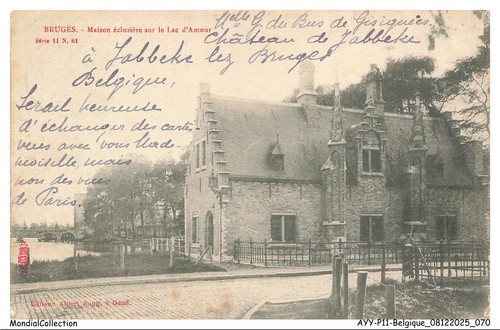 BRUGES. - Maison éclusière sur le Lac d'Amour
Série 11 N. 61
Mlle G. du Bus de Gisignies
Château de Jabbeke
à Jabbeke lez Bruges
Belgique,
Serait heureuse
d'échanger des cartes
vues avec vous Made-
moiselle, mais
non des vues
de Paris.
Editeur Albert Sugg, à Gand.
MondialCollection
AYY-P11-Belgique_08122025_070